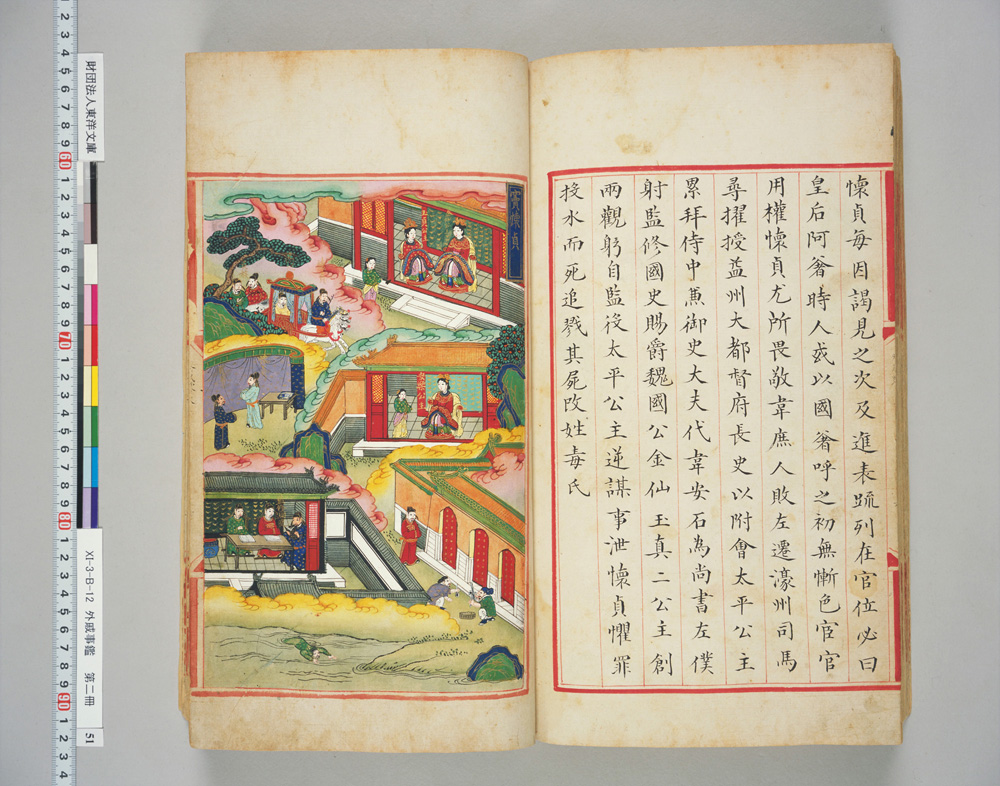 懷貞每因謁見之次及進表䟽列在官位必曰
皇后阿㸙時人或以國㸙呼之初無慚色宦官
用權懷貞尤所畏敬韋庶人敗左遷濠州司馬
尋擢授益州大都督府長史以附會太平公主
累拜侍中兼御史大夫代韋安石為尚書左僕
射監修國史賜爵魏國公金仙玉真二公主創
兩觀躬自監役太平公主逆謀事泄懷貞懼罪
投水而死追戮其屍改姓毒氏
財団法人東洋文庫
XI-3-B-12 外戚事鑑 第二冊
51